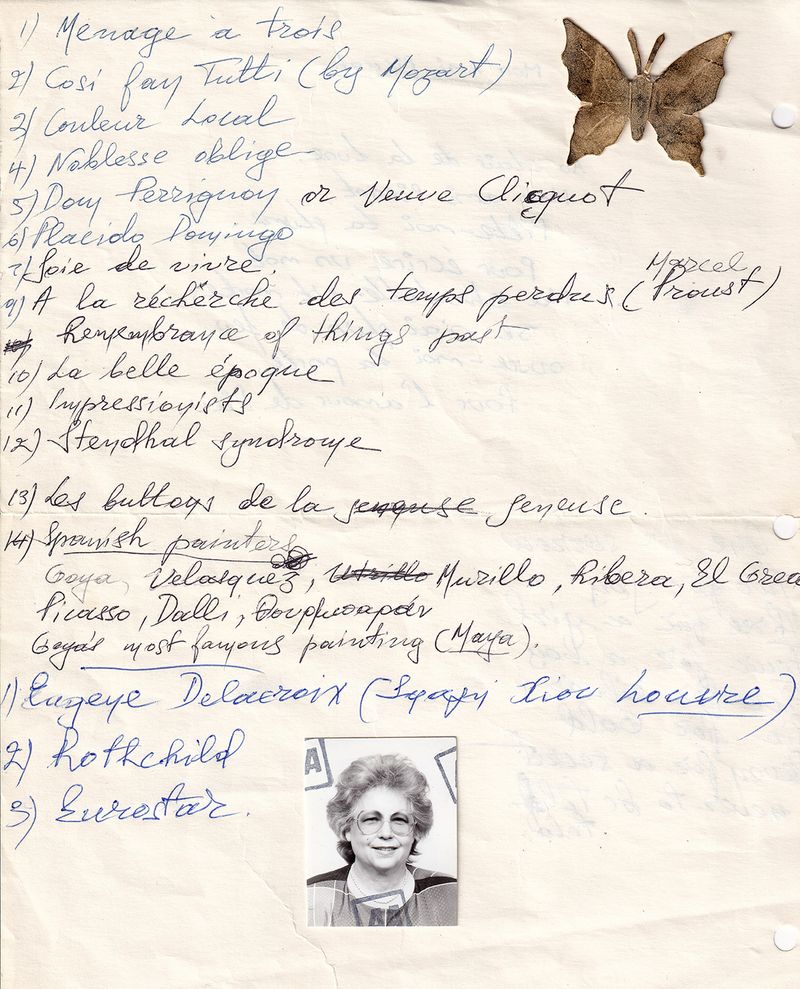 1) Menage a trois
2) Cosi fan Tutti (by Mozart)
3) Couleur Local
4) Noblesse oblige
5) Dom Perrignon or Veuve Clicquot
6) Placido Domingo
7) Joie de vivre.
9) A la récherche des temps perdus (Marcel Proust)
Remembrance of things past
10) La belle époque
11) Impressionists
12) Stendhal syndrome
13) Les buttons de la jeneuse.
14) Spanish painters
Goya, Velasquez, Utrillo Murillo, Ribera, El Grec
Picasso, Dalli, Θουρμπαράν
Goya's most famous painting (Maya).
1) Eugene Delacroix (Σφαγή Χίου Louvre)
2) Rothchild
3) Eurostar.
AA